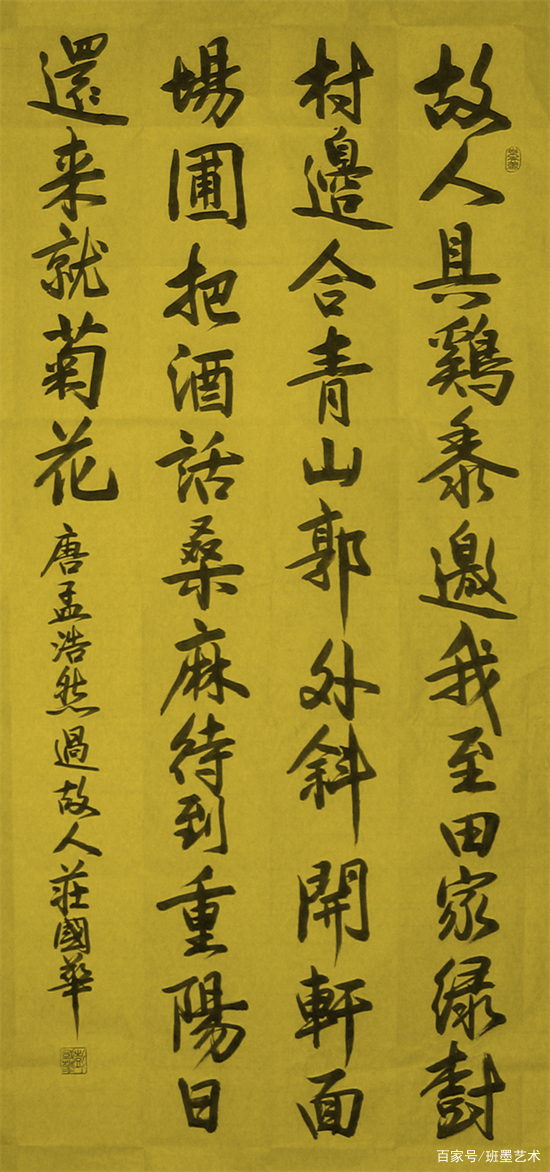 故人具鷄黍邀我至田家緑樹
村邊合青山郭外斜開軒面
場圃把酒話桑麻待到重陽日
還来就菊花
唐孟浩然過故人莊國華
百家号/班墨艺术